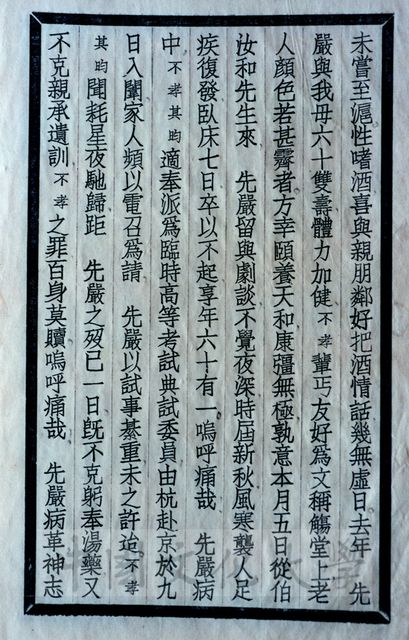 未嘗至滬性嗜酒喜與親朋鄰好把酒情話幾無虛日去年　先
嚴與我母六十雙壽體力加健不孝輩丐友好為文稱觴堂上老
人顏色若甚霽者方幸頤養天和康彊無極孰意本月五日從伯
汝和先生來　先嚴留與劇談不覺夜深時屆新秋風寒襲人足
疾復發臥床七日卒以不起享年六十有一嗚呼痛哉　先嚴病
中不孝其昀適奉派為臨時高等考試典試委員由杭赴京於九
日入闈家人頻以電召為請　先嚴以試事綦重未之許迨不孝
其昀聞耗星夜馳歸距　先嚴之歿已一日旣不克躬奉湯藥又
不克親承遺訓不孝之罪百身莫贖嗚呼痛哉　先嚴病革神志
中國文化大學